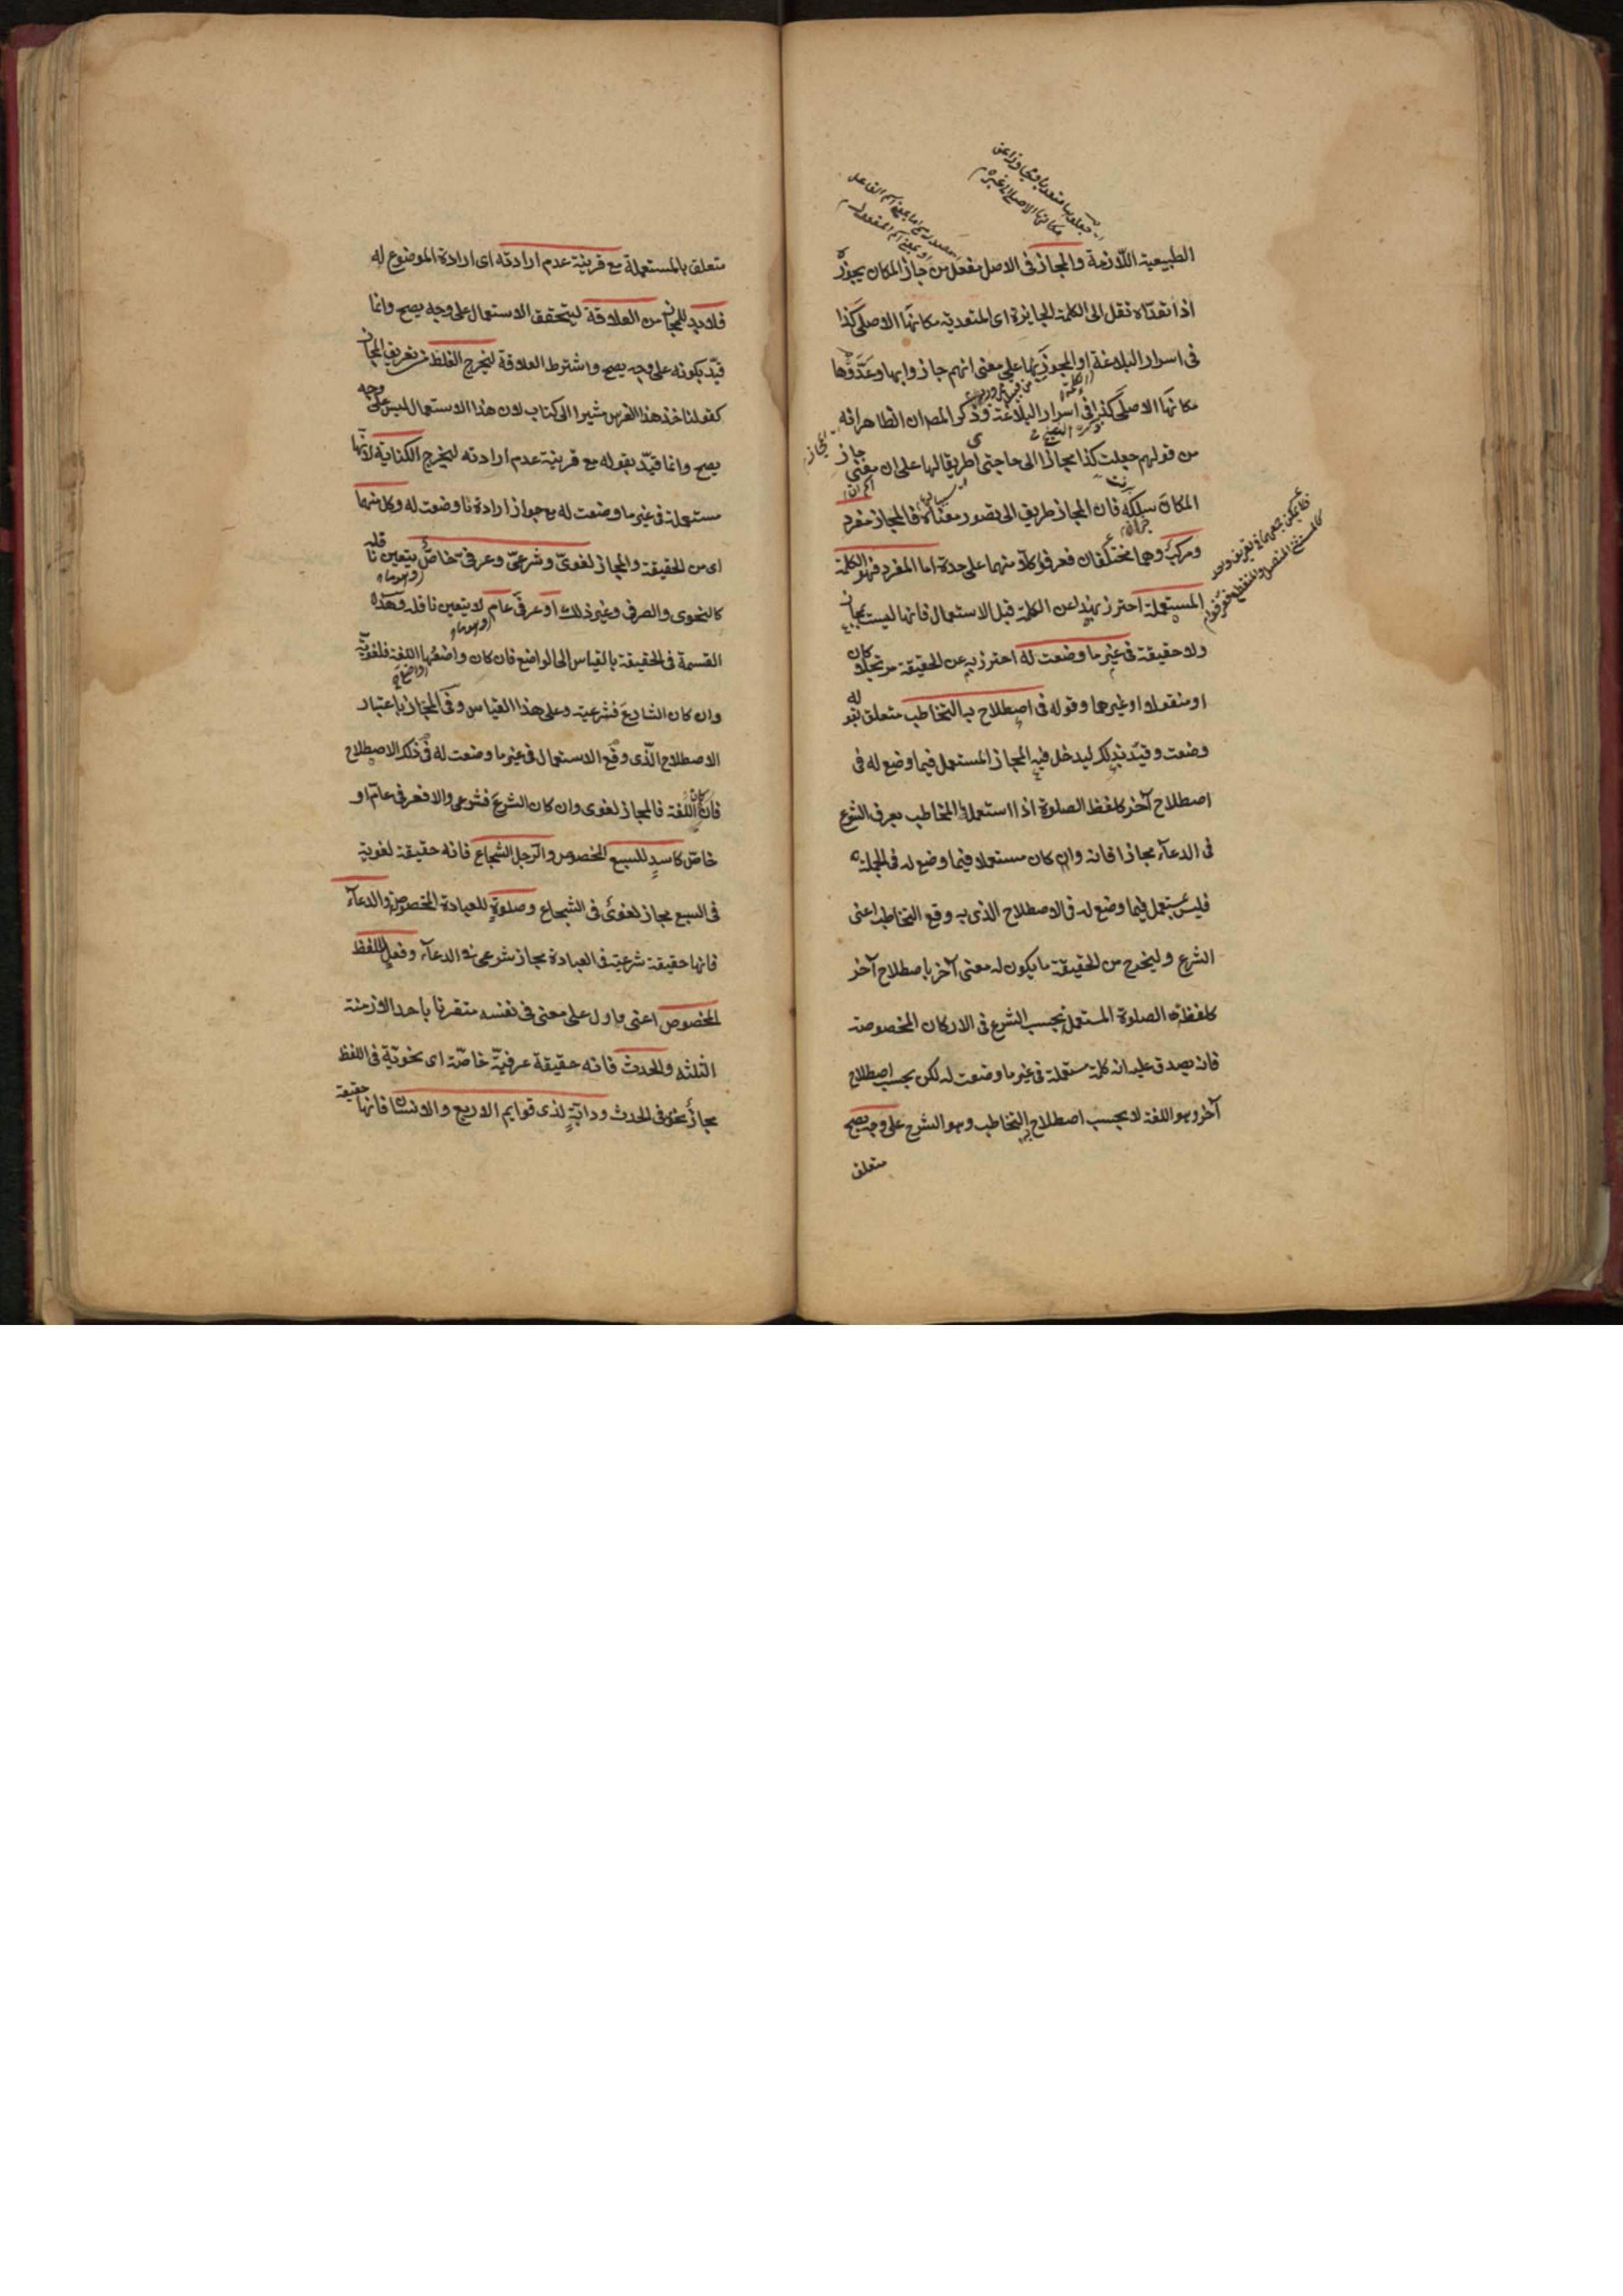 الطبيعية اللازمة والمجاز فى الاصل مفعل من جاز المكان يجوزه
اذا تعدّاه نقل الى الكلمة الجايزة اى المتعدية مكانها الاصلى كذا
فى اسرار البلاغة او المجوز بها على معنى انهم جازوا بها وعدّوها
مكانها الاصلى كذا فى اسرار البلاغة وذكر المص ان الظاهر انه
من قولهم جعلت كذا مجازا الى حاجتى اى طريقا لها على ان معنى جاز
المكان سلكه فان المجاز طريق الى تصور معناه فالمجاز مفرد
ومركب وهما مختلفان فعرفوا كلّا منهما على حدة اما المفرد فهو الكلمة
المستعملة احترز بهذا عن الكلمة قبل الاستعمال فانها ليست بمجاز
ولا حقيقة فى غير ما وضعت له احترز به عن الحقيقة مرتجلا كان
او منقولا او غيرهما وقوله فى اصطلاح به التخاطب متعلق بقوله
وضعت وقيّد بذلك ليدخل فيه المجاز المستعمل فيما وضع له فى
اصطلاح آخر كلفظ الصلوة اذا استعمله المخاطب بعرف الشرع
فى الدعاء مجازا فانه وان كان مستعملا فيما وضع له فى الجملة
فليس بمستعمل فيما وضع له فى الاصطلاح الذى به وقع التخاطب اعنى
الشرع وليخرج من الحقيقة ما يكون له معنى آخر باصطلاح آخر
كلفظة الصلوة المستعملة بحسب الشرع فى الاركان المخصوصة
فانه يصدق عليه انه كلمة مستعملة فى غير ما وضعت له لكن بحسب اصطلاح
آخر وهو اللغة لا بحسب اصطلاح به التخاطب وهو الشرع على وجه يصح
متعلق
متعلق بالمستعملة مع قرينة عدم ارادته اى ارادة الموضوع له
فلا بد للمجاز من العلاقة ليتحقق الاستعمال على وجه يصح وانما
قيّد بكونه على وجه يصح واشترط العلاقة ليخرج الغلط من تعريف المجاز
كقولنا خذ هذا الفرس مشيرا الى كتاب لان هذا الاستعمال ليس على وجه
يصح وانما قيّد بقوله مع قرينة عدم ارادته ليخرج الكناية لانها
مستعملة فى غير ما وضعت له مع جواز ارادة ما وضعت له وكل منهما
اى من الحقيقة والمجاز لغوىّ وشرعىّ وعرفىّ خاصّ يتعين ناقله
كالنحوى والصرفى وغير ذلك او عرفى عام لا يتعين ناقله وهذه
القسمة فى الحقيقة بالقياس الى الواضع فان كان واضعها اللغة فلغوية
وان كان الشارع فشرعية وعلى هذا القياس وفى المجاز باعتبار
الاصطلاح الّذى وقع الاستعمال فى غير ما وضعت له فى ذلك الاصطلاح
فان كان اللغة فالمجاز لغوى وان كان الشرع فشرعى والا فعرفى عامّ او
خاصّ كاسدٍ للسبع المخصوص والرجل الشجاع فانه حقيقة لغوية
فى السبع مجاز لغوىّ فى الشجاع وصلوةٍ للعبادة المخصوصة والدعاء
فانها حقيقة شرعية فى العبادة مجاز شرعى فى الدعاء وفعلٍ للفظ
المخصوص اعنى ما دل على معنى فى نفسه مقترنا باحد الازمنة
الثلثة والحدث فانه حقيقة عرفيّة خاصّة اى نحويّة فى اللفظ
مجاز نحوى فى الحدث ودابّةٍ لذى قوايم الاربع والانسان فانها حقيقة